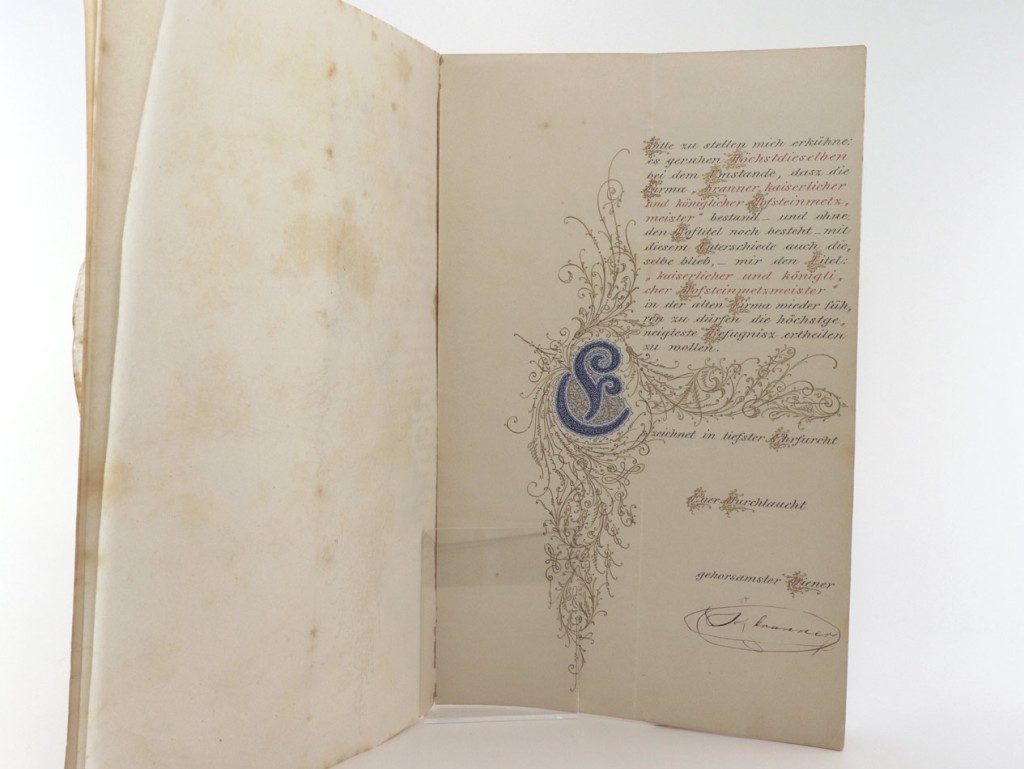 Bitte zu stellen mich erkühne:
es geruhen Höchstdieselben
bei dem Umstande, dasz die
Firma „Kranner, kaiserlicher
und königlicher Hofsteinmetz„
meister" bestand _ und ohne
den Hoftitel noch besteht _ mit
diesem Unterschiede auch die„
selbe blieb, _ mir den Titel:
„kaiserlicher und königli„
cher Hofsteinmetzmeister"
in der alten Firma wieder füh„
ren zu dürfen die höchstge„
neigteste Befugnisz ertheilen
zu wollen.
Ezeichnet in tiefster Ehrfurcht
Euer Durchlaucht
gehorsamster Diener
Kranner